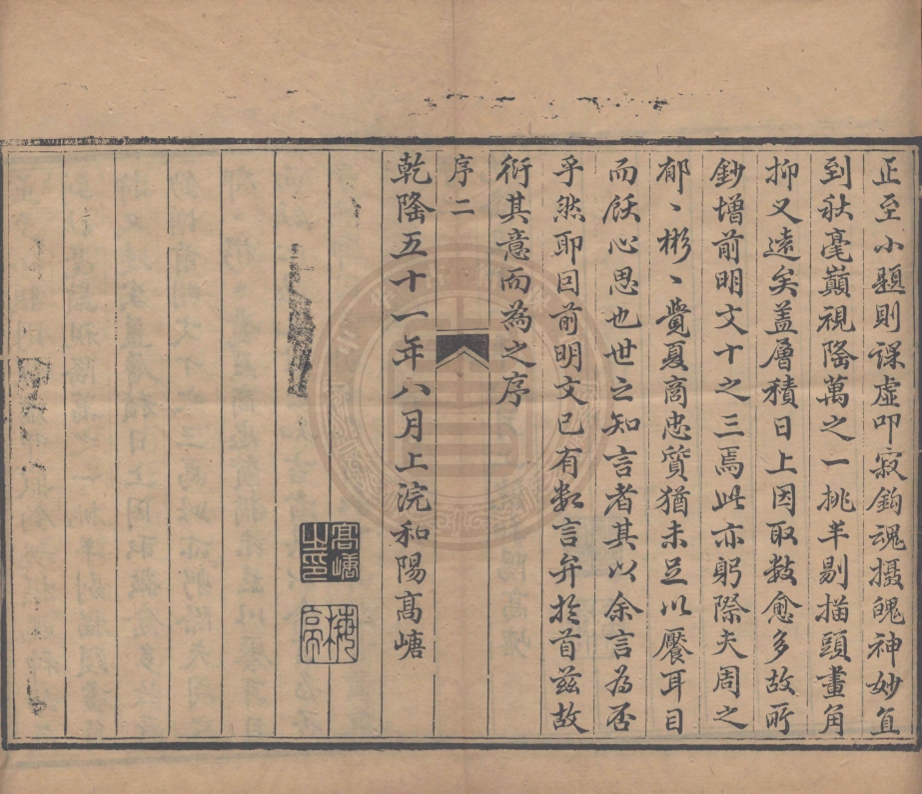 正至小題則課虛叩寂鈎魂攝魄神妙直
到秋毫巔視隆萬之一挑半剔描頭畫角
抑又遠矣盖層積日上因取数愈多故所
鈔增前明文十之三焉此亦躬際夫周之
郁〻彬〻覺夏商忠質猶未足以饜耳目
而厭心思也世之知言者其以余言為否
乎然耶囙前明文已有数言弁於首茲故
衍其意而為之序
序二
乾隆五十一年八月上浣和陽高嵣
高嵣之印
梅亭